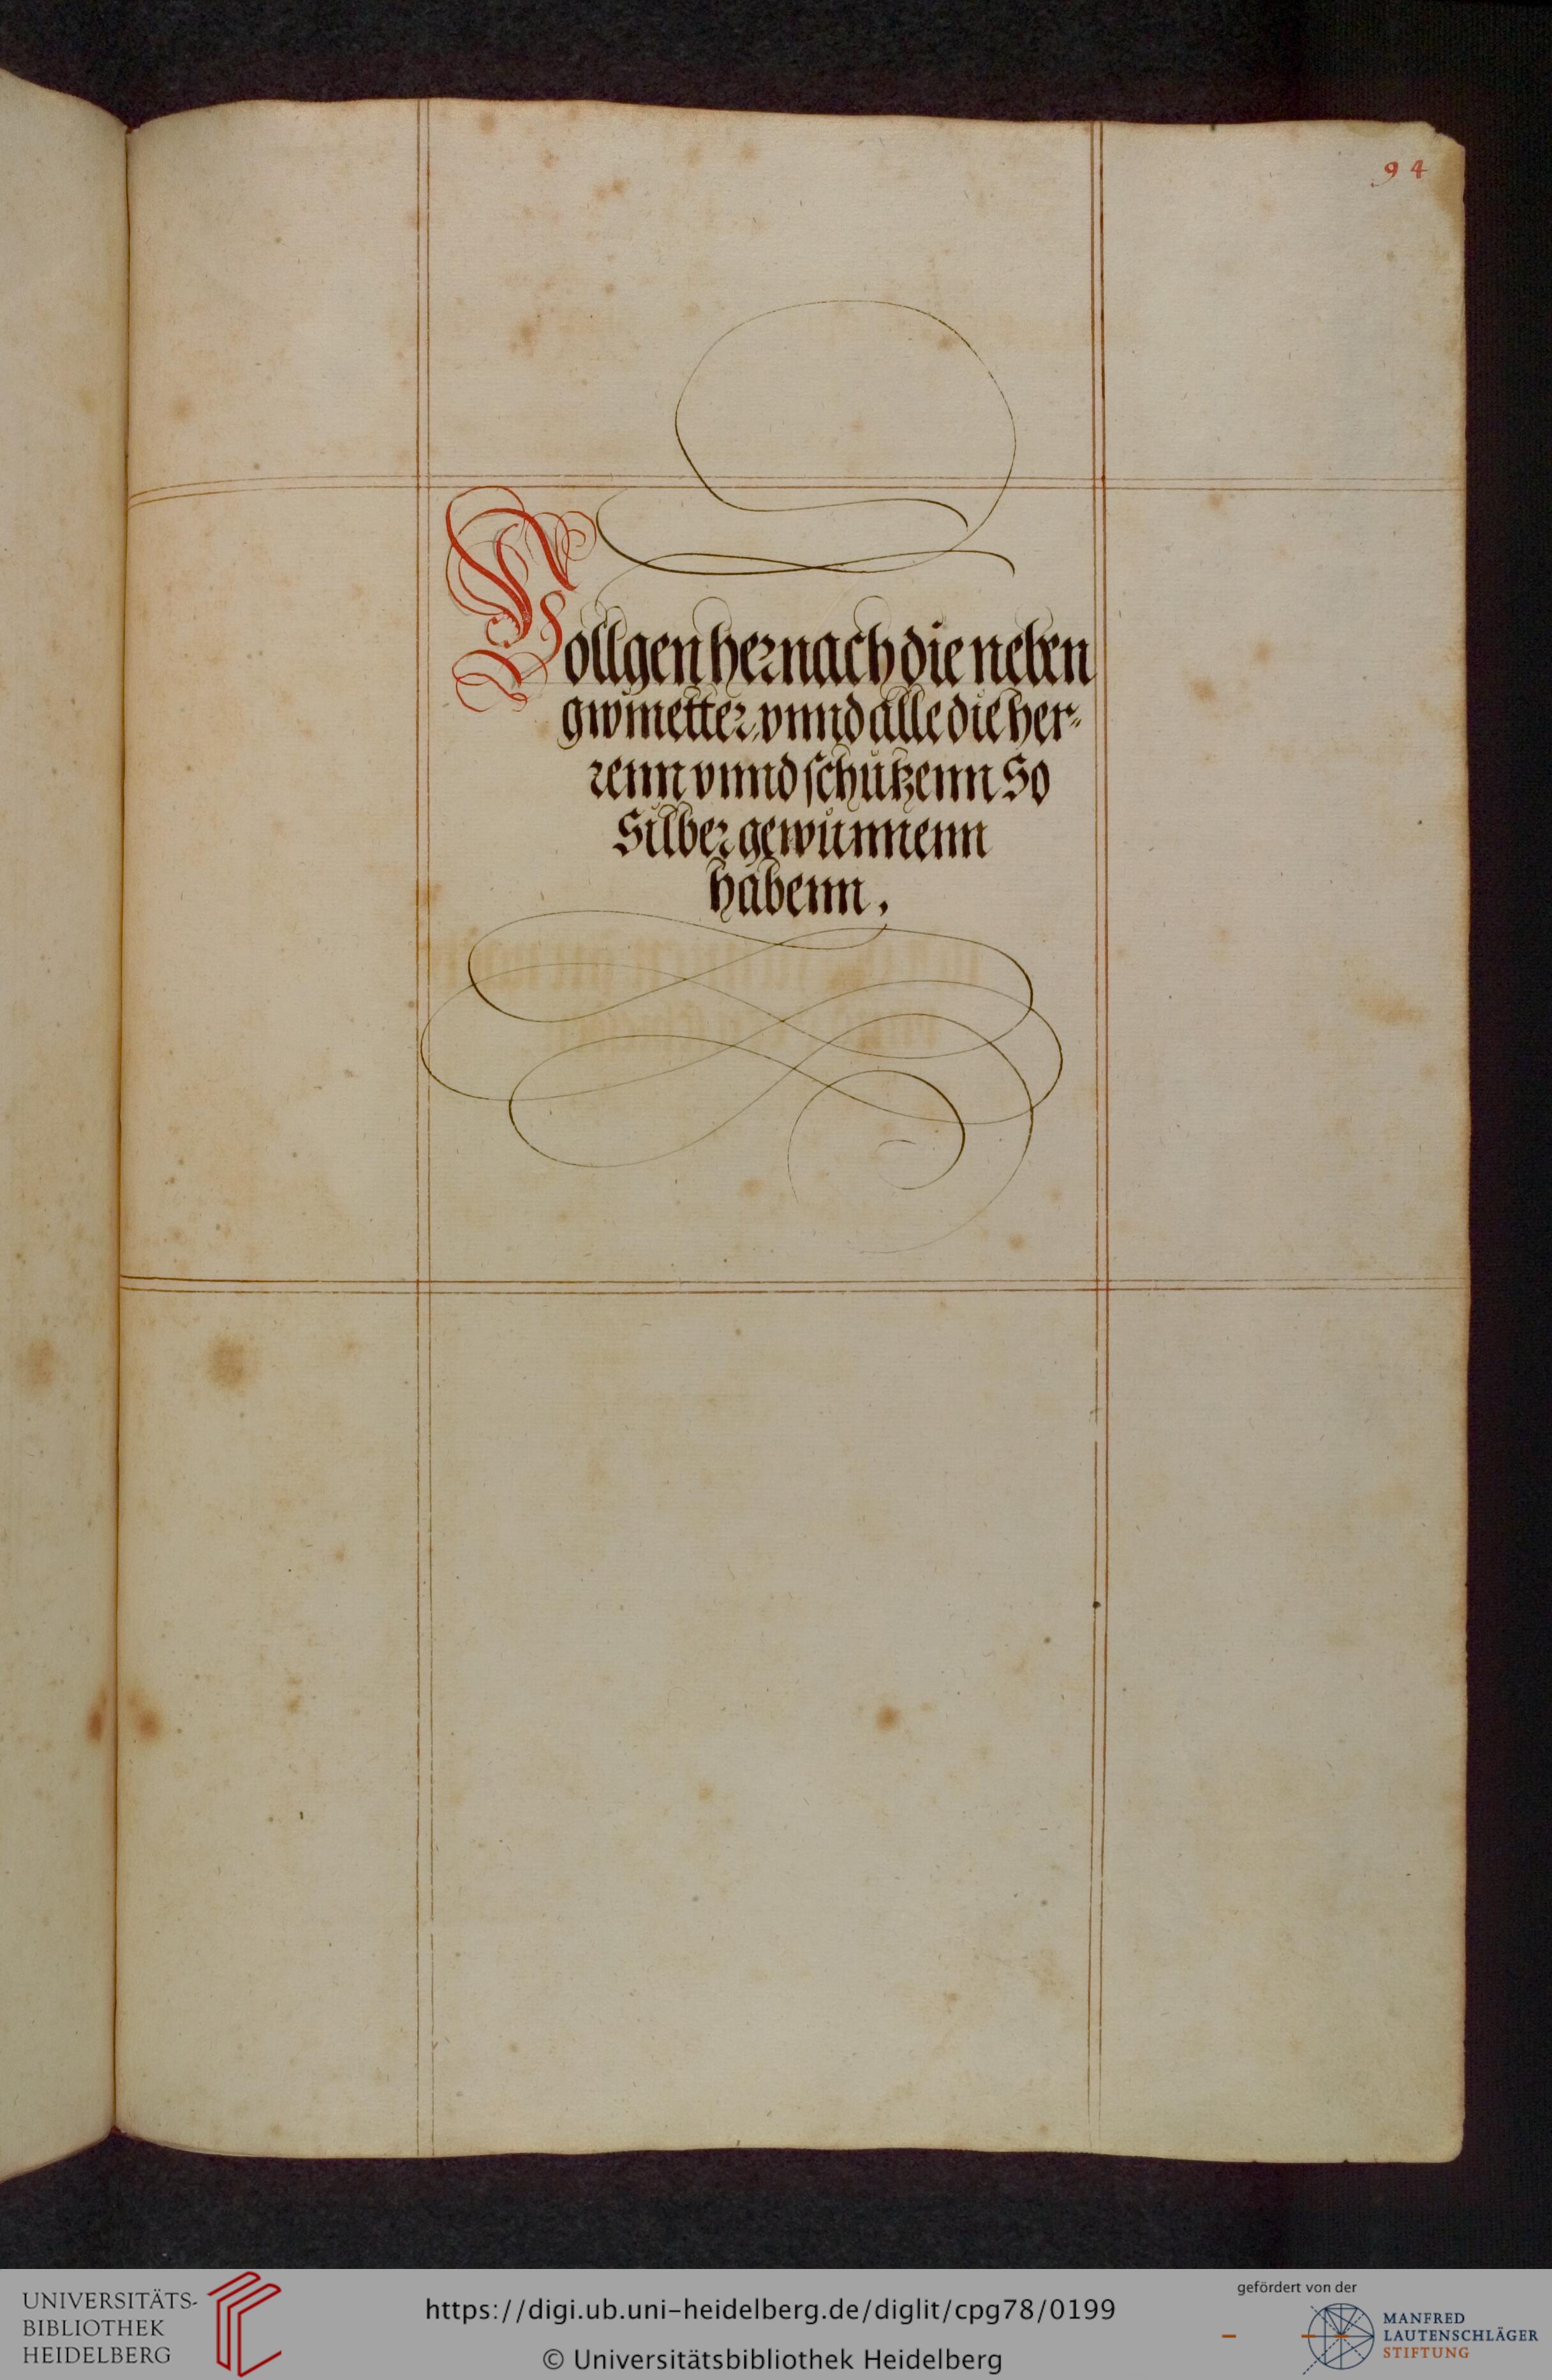 94
Vollgen hernach die neben
gwinetter, vnnd alle die her-
renn vnnd schützenn So
Silber gewunnenn
habenn.
UNIVERSITÄTS-
BIBLIOTHEK
HEIDELBERG
https://digi.ub.uni-heidelberg.de/diglit/cpg78/0199
© Universitätsbibliothek Heidelberg
gefördert von der
MANFRED
LAUTENSCHLÄGER
STIFTUNG